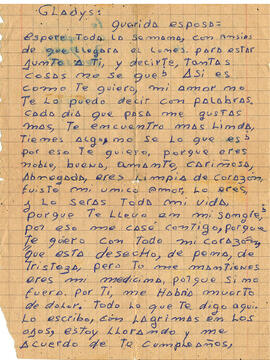 GLadys:
Querida esposa:
espere Toda la semana, con ansias
de que llegara el Lunes. para estar
Junto A Ti, y decirte, Tantas
cosas me se que. Asi es
como Te quiero, mi amor no
Te Lo puedo decir con palabras,
cada dia que pasa me gustas
mas, Te encuentro mas Linda,
Tienes algo, no se Lo que es
por eso Te quiero, porque eres
noble, buena, amante, cariñosa,
Abnegada, eres Limpia de corazón,
fuiste mi unico amor, Lo eres,
y Lo seras Toda mi vida,
porque Te LLevo en mi sangre,
por eso me case contigo, porque
Te quiero con Todo mi corazón,
que esta desecho, de pena, de
Tristeza, pero Tu me mantienes
eres mi medicina, porque si no
fuera. por Ti, me habria muerto
de dolor. Todo Lo que Te digo aqui
Lo escribo, con Lagrimas en Los
ojos, estoy LLorando y me
Acuerdo de Tu cumpleaños,